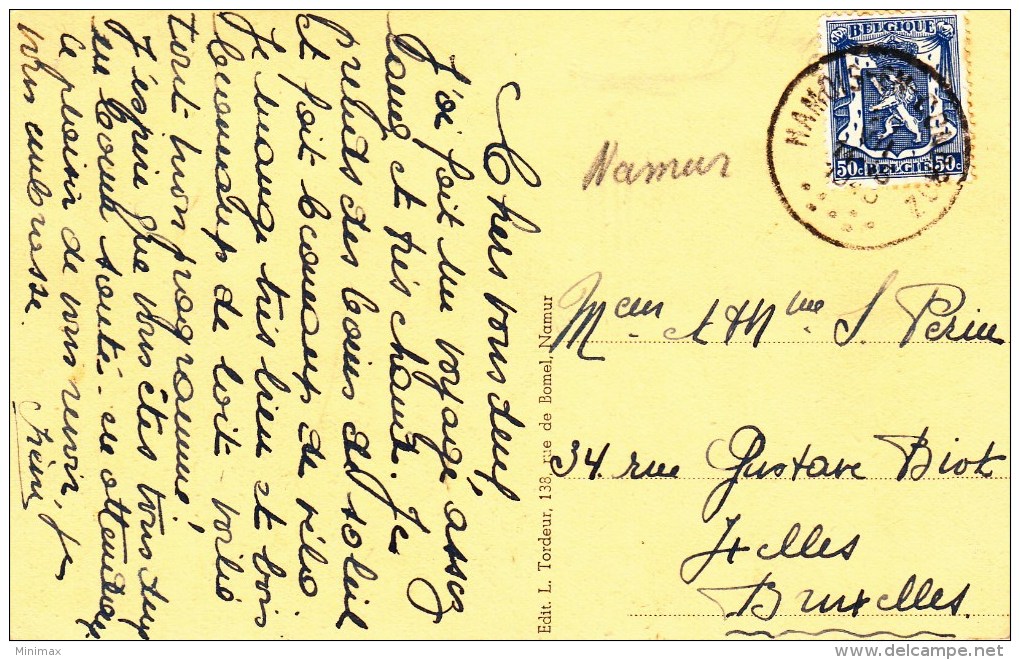 Chers vous deux,
J'ai fait un voyage assez
long et très chaud. Je
prends des bains de soleil
et fait beaucoup de vélo
Je mange très bien et bois
beaucoup de lait voilà
tout mon programme,
J'espère que vous êtes tous deux
en bonne santé - en attendant
ce plaisir de vous revoir, je
vous embrasse
Irène
Edit. L. Tordeur, 138, rue de Bomel, Namur
Namur
BELGIQUE
50c BELGIE 50c
Mme S. Perin
34 rue Gustave Biot
Ixelles
Bruxelles
Minimax
www.delcampe.net